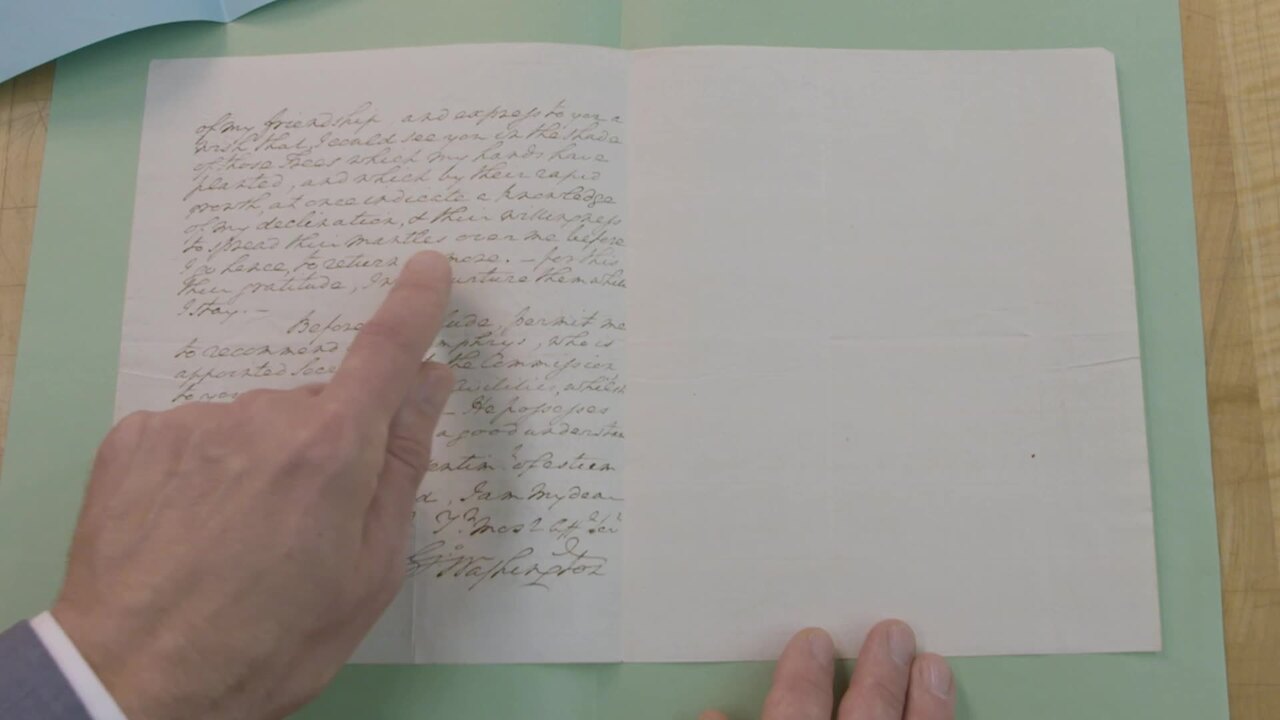 of my friendship, and express to you a
wish that, I could see you in the shade
of those Trees which my hands have
planted, and which by their rapid
growth, at once indicate a knowledge
of my declination, & their willingness
to spread their mantles over me before
I go hence, to return more. – for this
their gratitude, I nurture them while
I stay. –
Before permit me
to recommend who is
appointed the Commission
to civilities, whilst
– He possesses
a good
of esteem
I am My dear
Yr. most Affe. Ser
Go. Washington